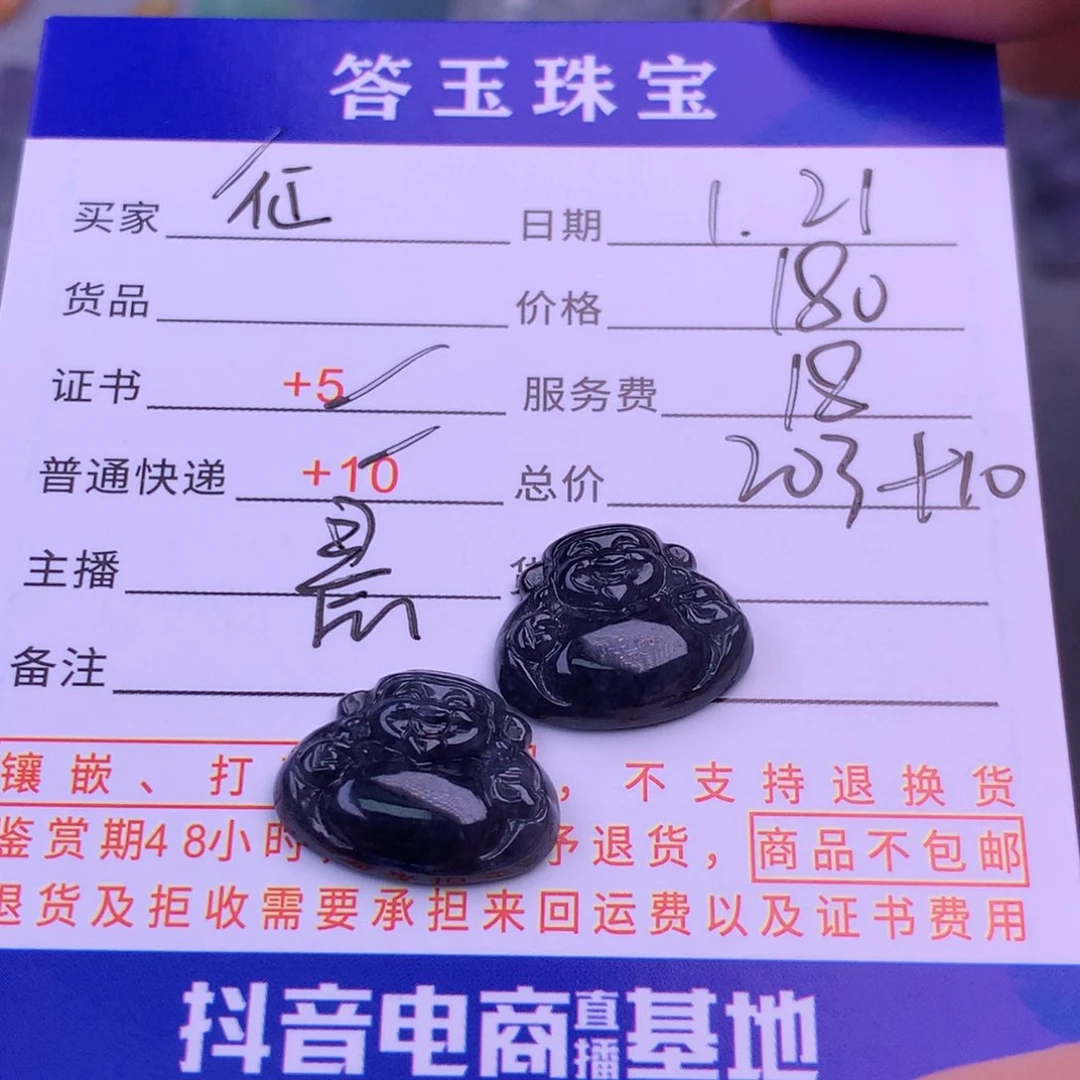 答玉珠宝
买家 征 日期 1.21
货品 价格 180
证书 +5 服务费 18
普通快递 +10 总价 203+10
主播
备注
镶嵌、打 ，不支持退换货
鉴赏期48小时 予退货，商品不包邮
退货及拒收需要承担来回运费以及证书费用
抖音电商直播基地